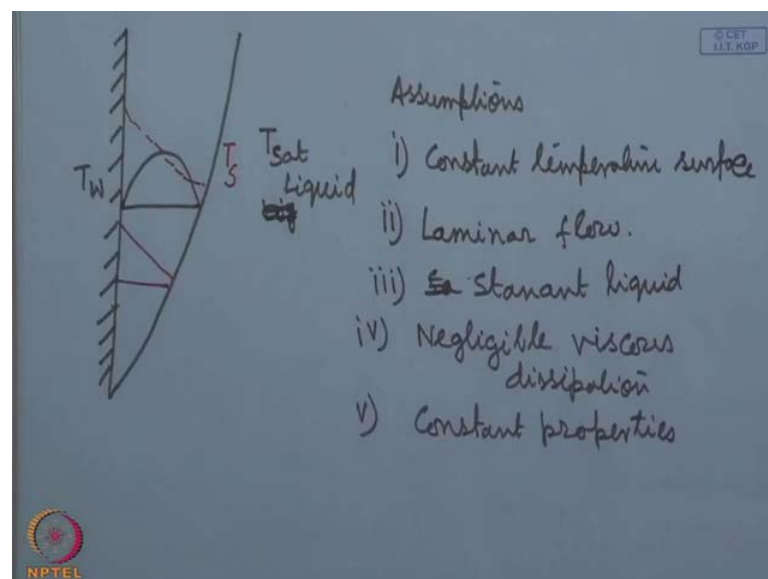 © CET
I.I.T. KGP
Assumptions
i) Constant temperature surface
ii) Laminar flow.
iii) Stanant liquid
iv) Negligible viscous
dissipation
v) Constant properties
Tw
Ts
Tsat
Liquid
NPTEL